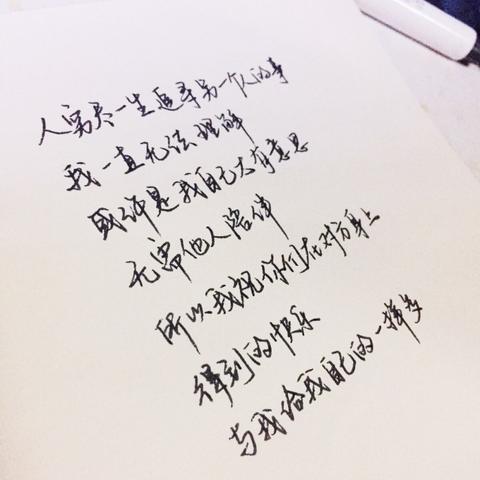 人穷尽一生追寻另一个人的事
我一直无法理解
或许是我自己太有意思
无需他人陪伴
所以我祝你们在对方身上
得到的快乐
与我给我自己的一样多